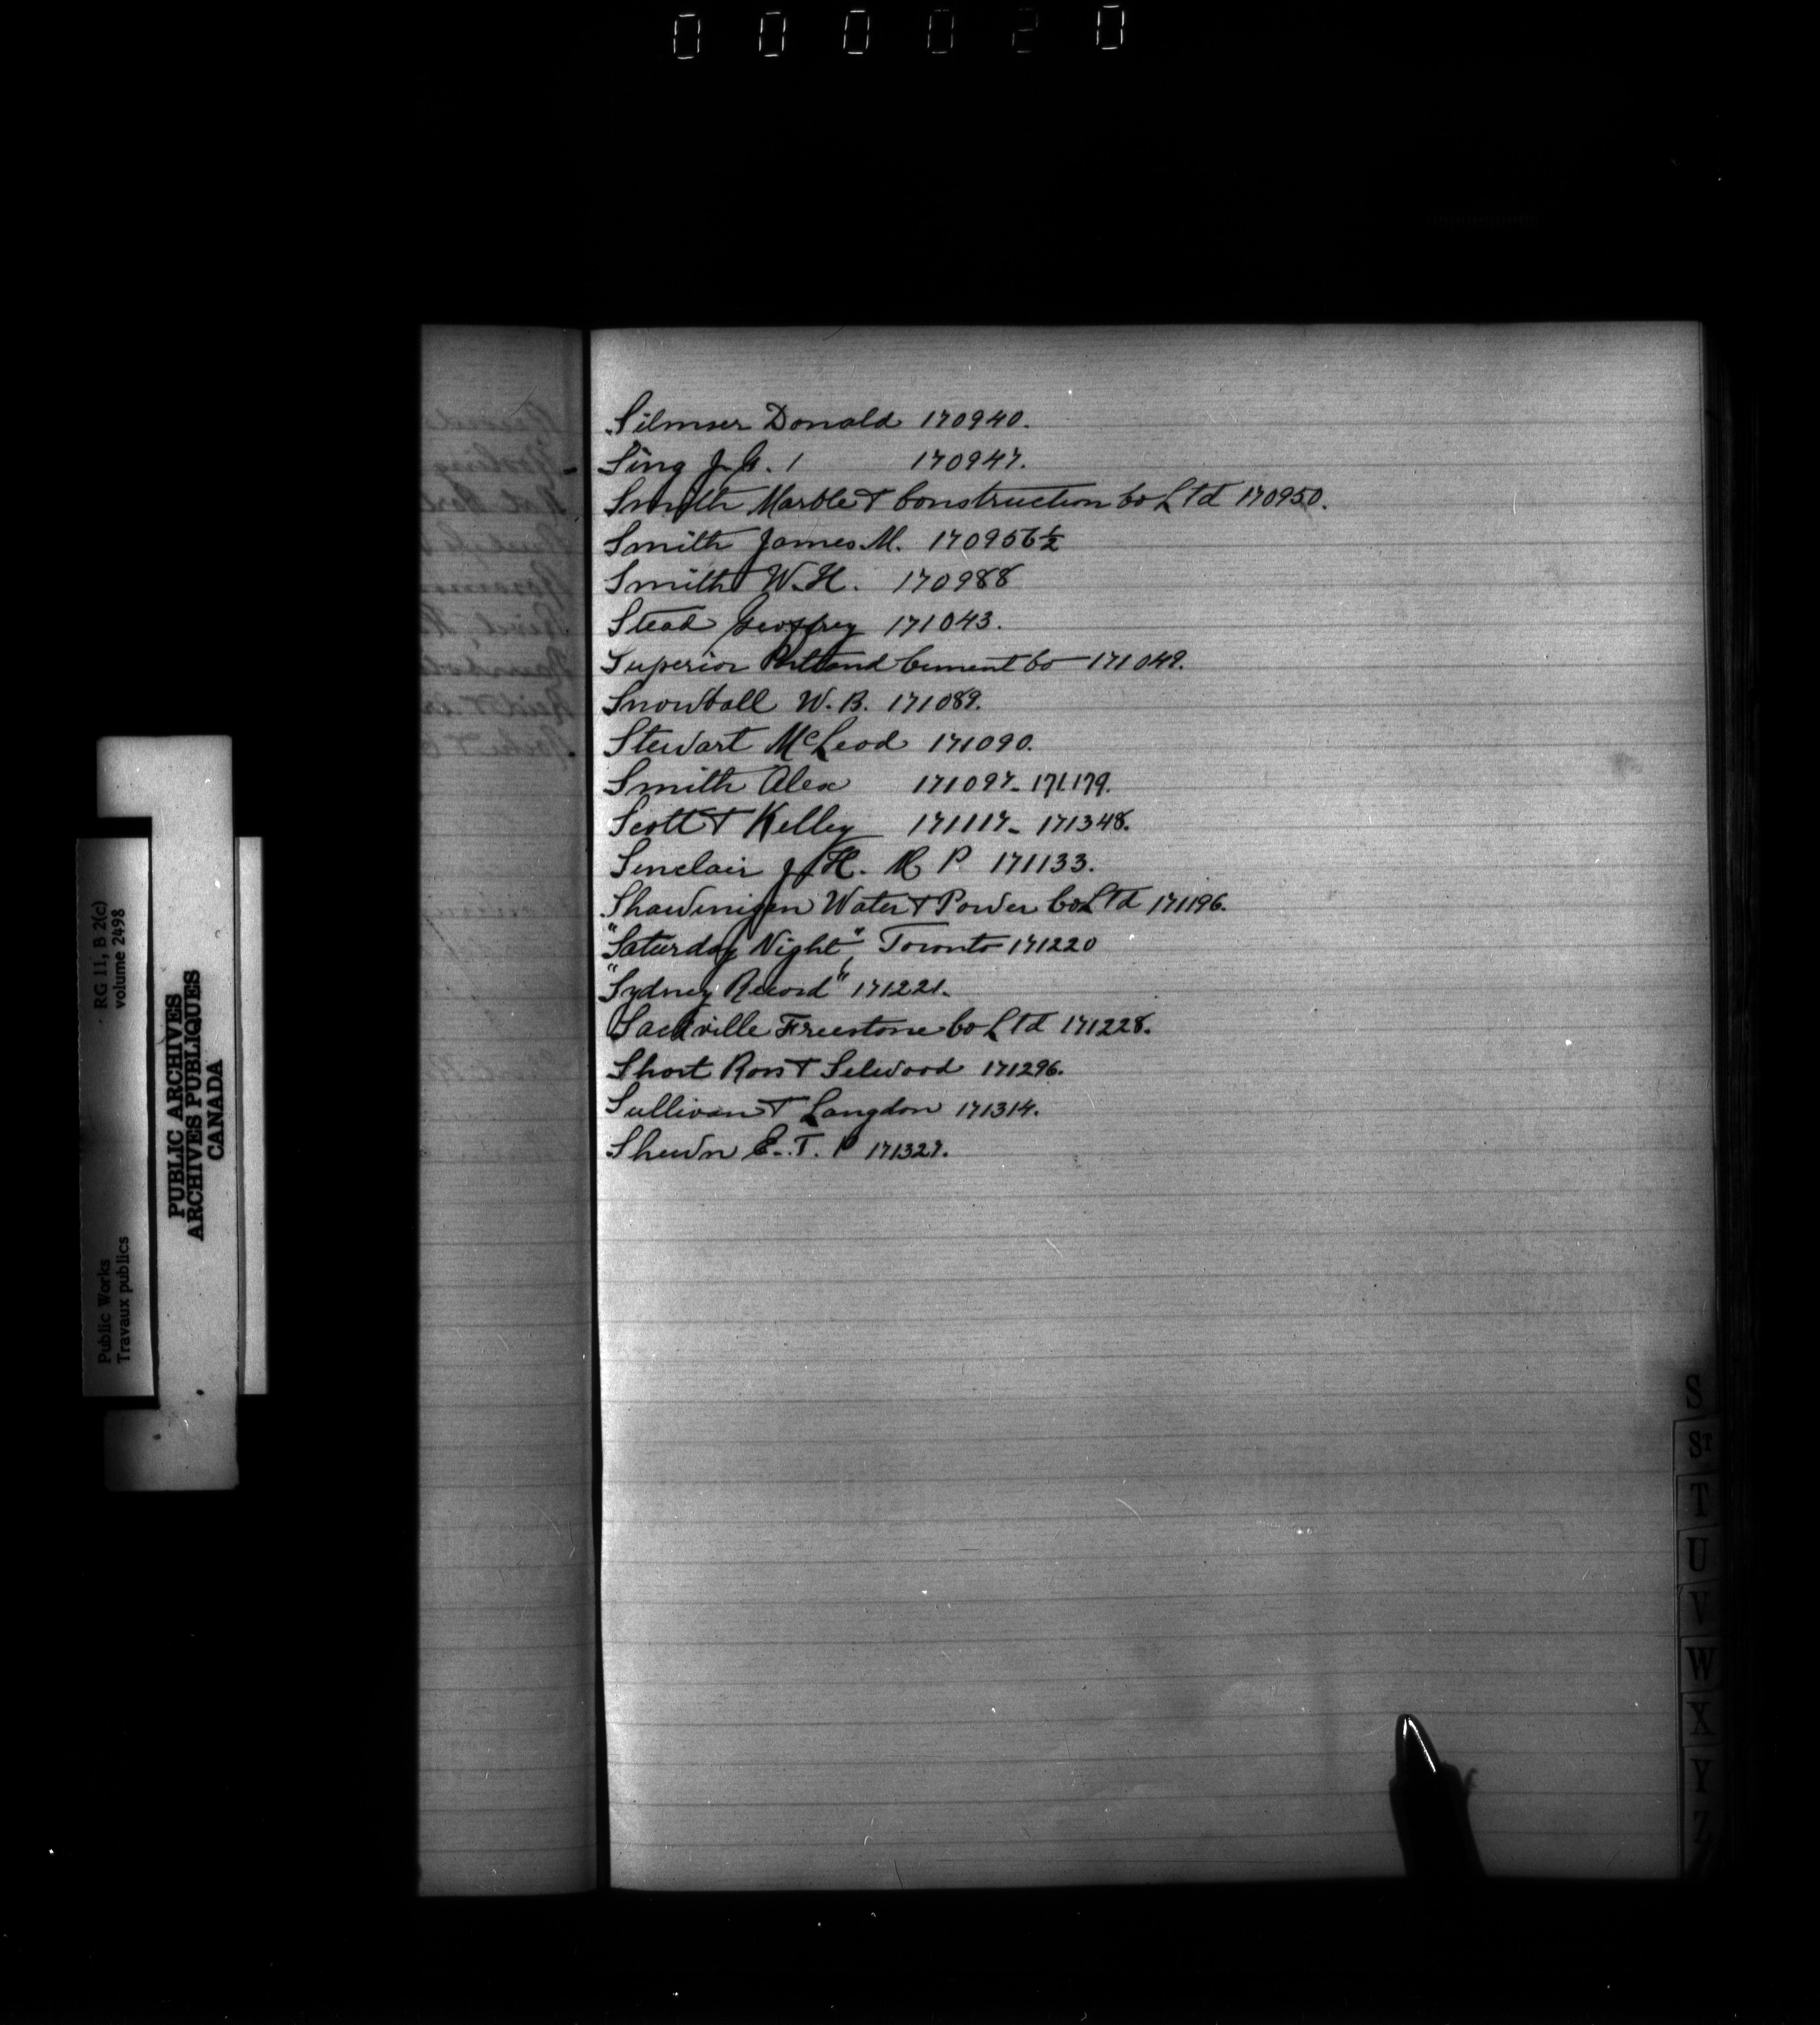 000020
Silmser Donald 170940.
Sing J. G. 1 170947.
Smith Marble & Construction Co Ltd 170950.
Smith James M. 170956½
Smith W. H. 170988
Stead Geoffrey 171043.
Superior Portland Cement Co 171049.
Snowball W. B. 171089.
Stewart McLeod 171090.
Smith Alex 171097 - 171179.
Scott & Kelley 171117 - 171348.
Sinclair J. H. M P. 171133.
Shawinigan Water & Power Co Ltd 171196.
"Saturday Night", Toronto 171220
"Sydney Record" 171221.
Sackville Freestone Co Ltd 171228.
Short Ross & Selwood 171296.
Sullivan & Langdon 171314.
Shewn E. T. P 171327.
S
ST
T
U
V
W
X
Y
Z
Public Works
Travaux publics
RG 11, B 2(c)
volume 2498
PUBLIC ARCHIVES
ARCHIVES PUBLIQUES
CANADA